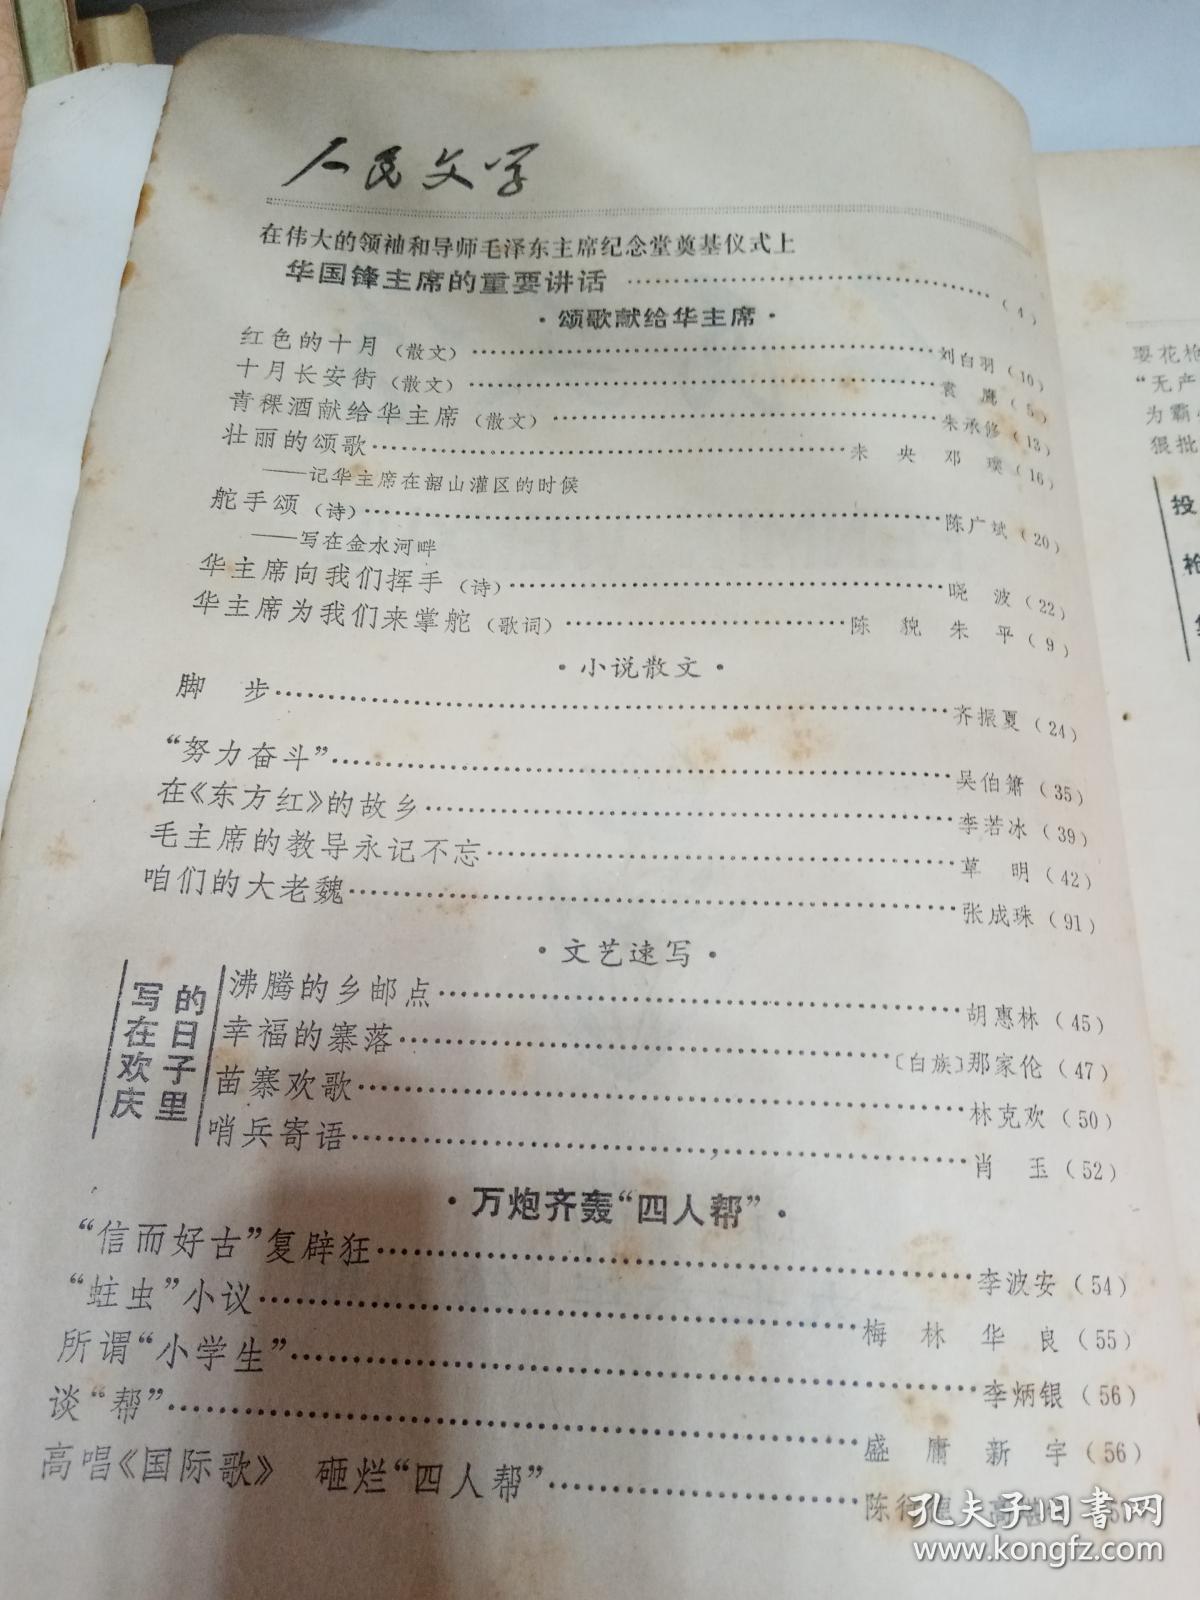 人民文学
在伟大的领袖和导师毛泽东主席纪念堂奠基仪式上
华国锋主席的重要讲话……（4）
·颂歌献给华主席·
红色的十月（散文）……刘白羽（10）
十月长安街（散文）……袁 鹰（5）
青稞酒献给华主席（散文）……朱承修（13）
壮丽的颂歌……未 央 邓 璞（16）
——记华主席在韶山灌区的时候
舵手颂（诗）……陈广斌（20）
——写在金水河畔
华主席向我们挥手（诗）……晓 波（22）
华主席为我们来掌舵（歌词）……陈 貌 朱 平（9）
·小说散文·
脚 步……齐振夏（24）
“努力奋斗”……吴伯箫（35）
在《东方红》的故乡……李若冰（39）
毛主席的教导永记不忘……草 明（42）
咱们的大老魏……张成珠（91）
·文艺速写·
写在欢庆
的日子里
沸腾的乡邮点……胡惠林（45）
幸福的寨落……〔白族〕那家伦（47）
苗寨欢歌……林克欢（50）
哨兵寄语……肖 玉（52）
·万炮齐轰“四人帮”·
“信而好古”复辟狂……李波安（54）
“蛀虫”小议……梅 林 华 良（55）
所谓“小学生”……李炳银（56）
谈“帮”……盛 庸 新 宇（56）
高唱《国际歌》 砸烂“四人帮”……陈
耍花枪
“无产
为霸
狠批
投
枪
孔夫子旧书网
www.kongfz.com